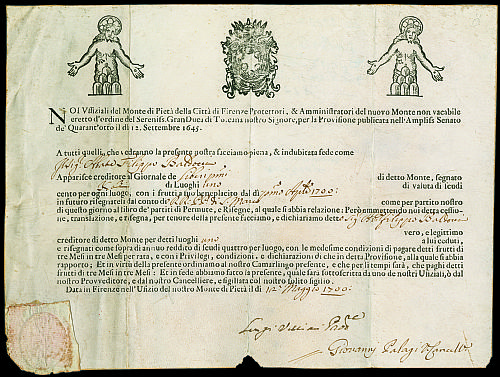 NOI Ufiziali del Monte di Pietà della Città di Firenze Protettori, & Amministratori del nuovo Monte non vacabile
eretto d'ordine del Sereniss. Gran Duca di Toscana nostro Signore, per la Provisione publicata nell'Ampliss. Senato
de' Quarant'otto il dì 12. Settembre 1645.
A tutti quelli, che vedranno la presente nostra facciamo piena, & indubitata fede come
Filippo
Apparisce creditore al Giornale de di detto Monte, segnato
di Luoghi uno di valuta di scudi
cento per ogni luogo, con i frutti a suo beneplacito dal dì primo Aple 1700:
in futuro risegnatili dal conto de S. Maria come per partito nostro
di questo giorno al libro de' partiti di Permute, e Risegne, al quale si abbia relazione: Però ammettendo noi detta cessio-
ne, translazione, e risegna, per tenore della presente facciamo, e dichiariamo detto Filippo
vero, e legittimo
creditore di detto Monte per detti luoghi uno a lui ceduti,
e risegnati come sopra di annuo reddito di scudi quattro per luogo, con le medesime condizioni di pagare detti frutti di
tre Mesi in tre Mesi per rata, e con i Privilegi, condizioni, e dichiarazioni di che in detta Provisione, alla quale si abbia
rapporto; Et in virtù della presente ordiniamo al nostro Camarlingo presente, e che per li tempi sarà, che paghi detti
frutti di tre Mesi in tre Mesi: Et in fede abbiamo fatto la presente, quale sarà sottoscritta da uno de nostri Ufiziali, ò dal
nostro Provveditore, e dal nostro Cancelliere, e sigillata col nostro solito sigillo.
Data in Firenze nell'Ufizio del nostro Monte di Pietà il dì 12 Maggio 1700:
Luigi
Giovanni